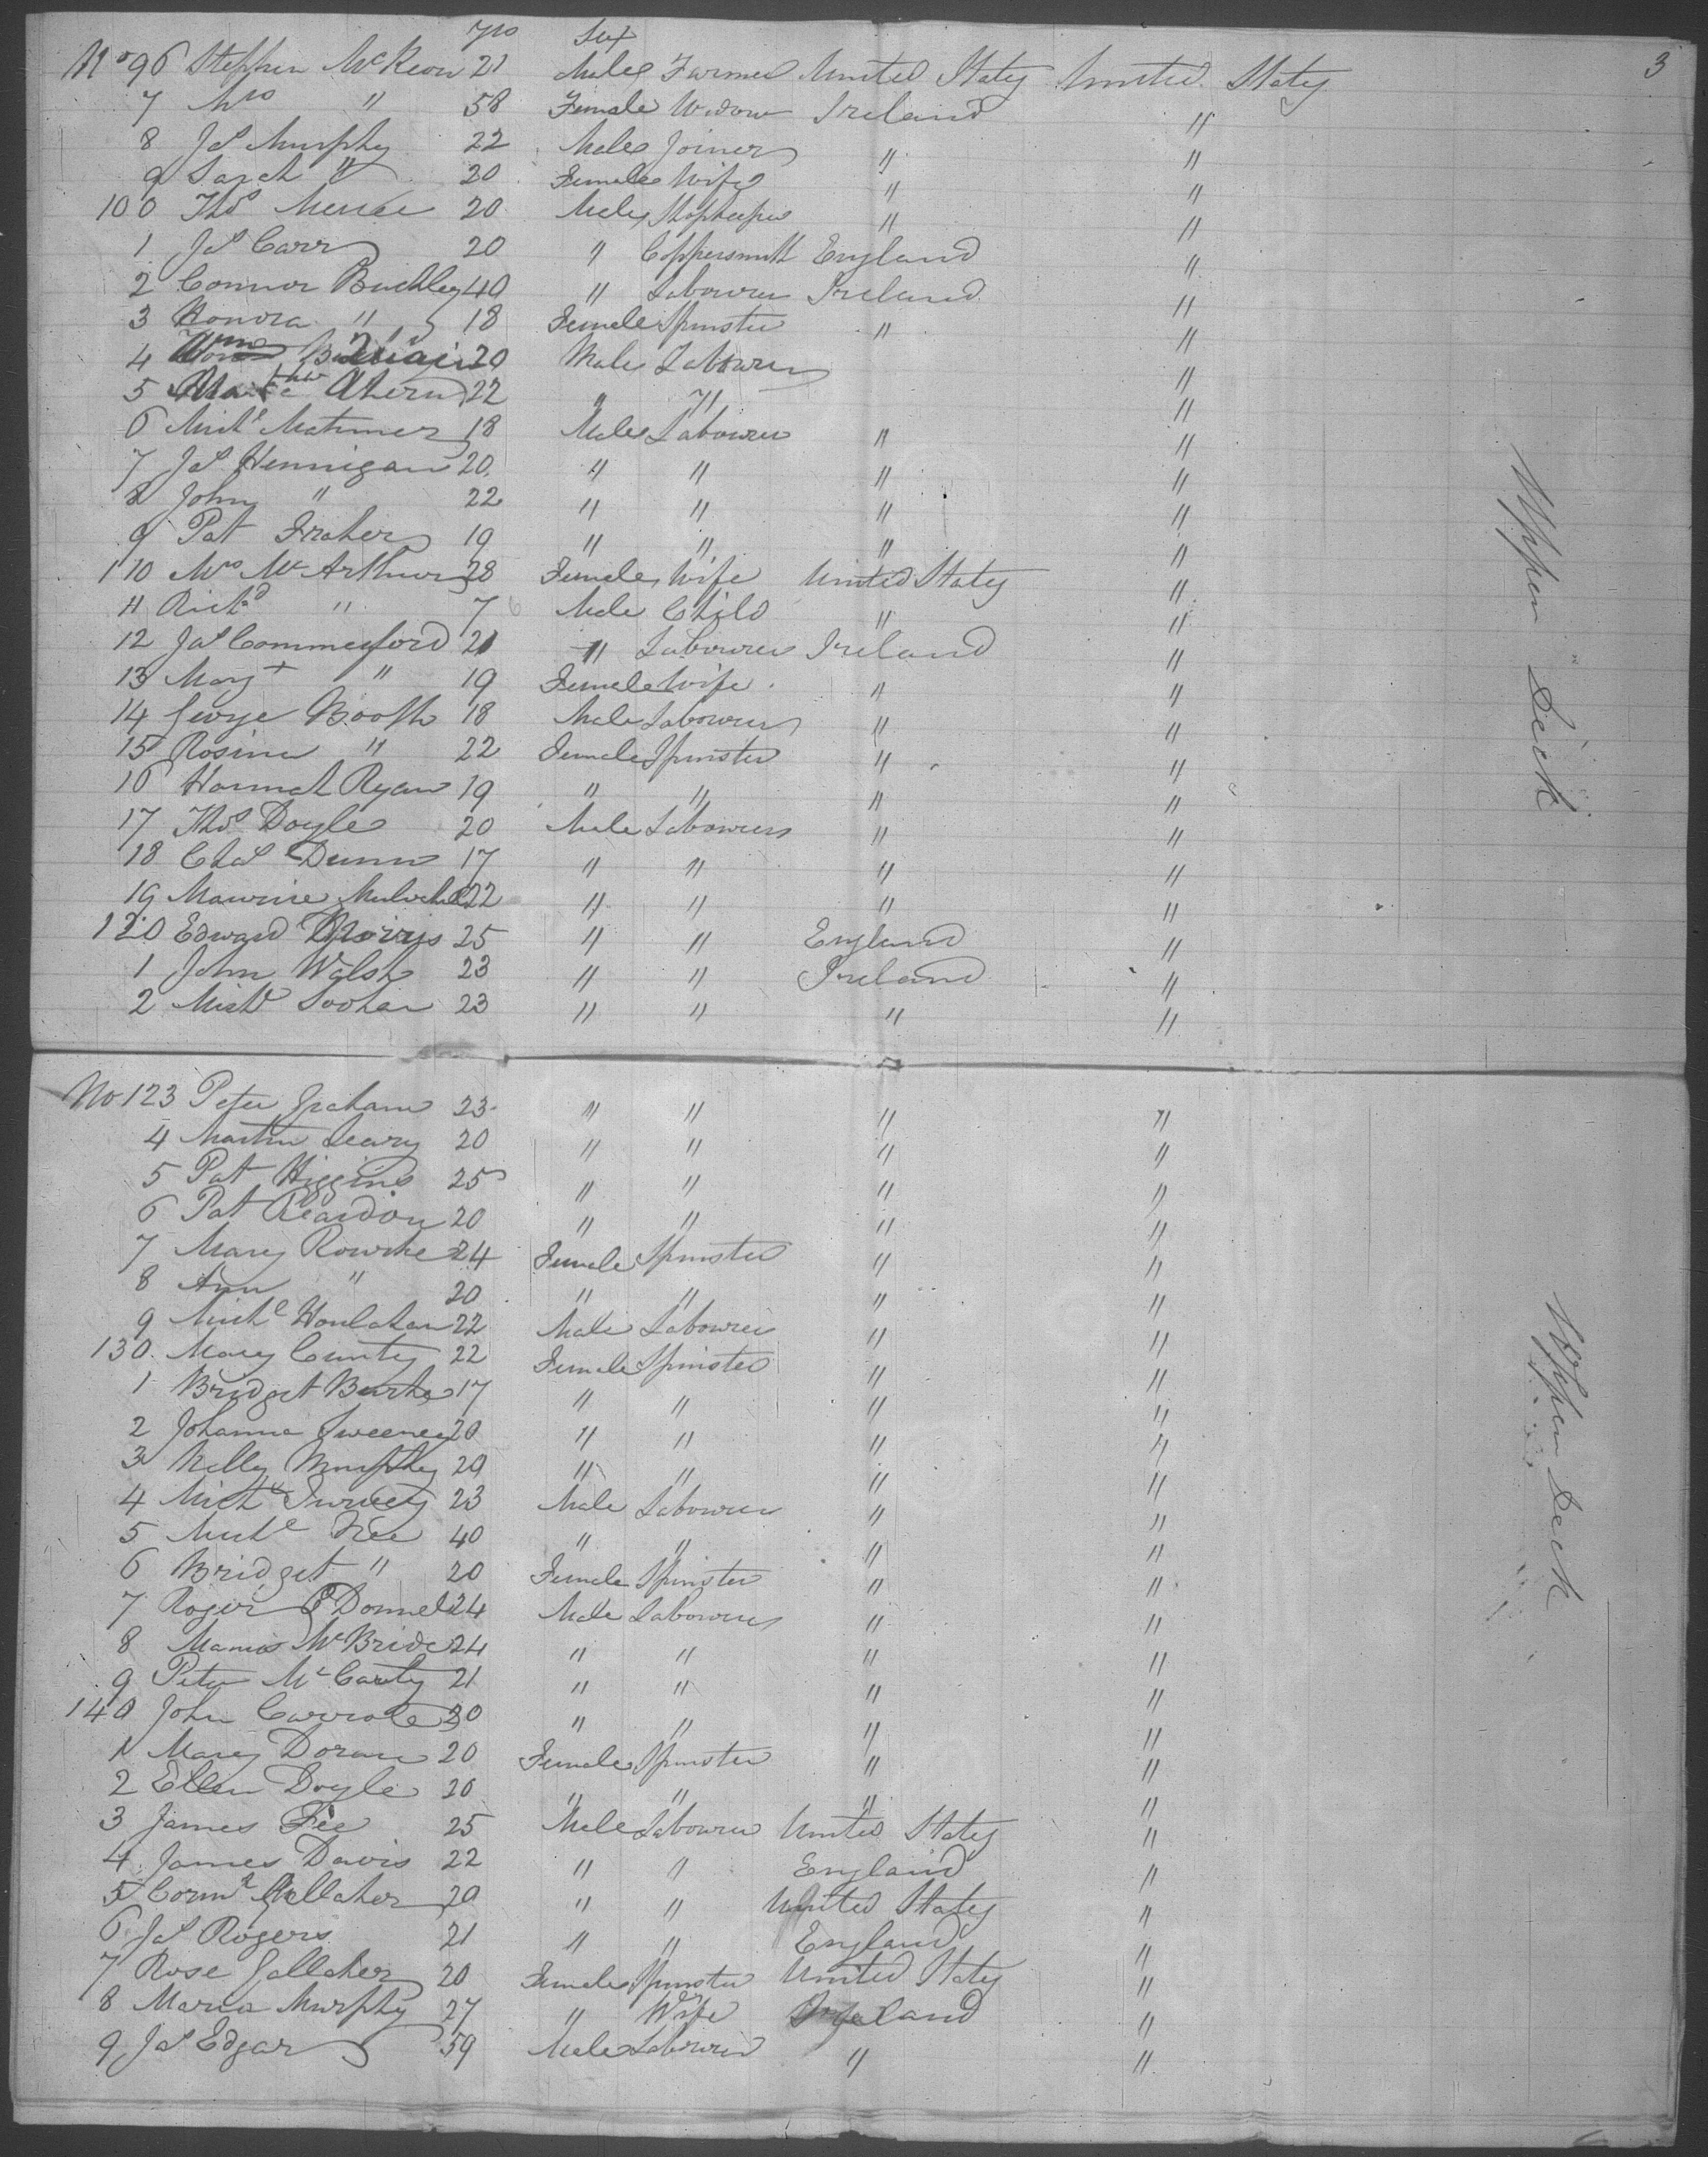 yrs Sex
3
No 96 Stephen McKeon 21 Male Farmer United States United States
7 Mrs " 58 Female Widow Ireland "
8 Jas Murphy 22 Male Joiner " "
9 Sarah " 20 Female Wife " "
100 Thos 20 Male Shopkeeper " "
1 Jas Carr 20 " Coppersmith England "
2 Connor Buckley 40 " Labourer Ireland "
3 Honora " 18 Female Spinster " "
4 Wm 20 Male Labourer "
5 Ahern 22 " " "
6 Michl 18 Male Labourer " "
7 Jas Hennigan 20 " " " "
8 John " 22 " " " "
9 Pat Fraher 19 " " " "
110 Mrs McArthur 28 Female Wife United States "
11 Richd " 7 Male Child " "
12 Jas Commerford 21 " Labourer Ireland "
13 Margt " 19 Female Wife " "
14 George Booth 18 Male Labourer " "
15 Rosina " 22 Female Spinster " "
16 Hannah Ryan 19 " " " "
17 Thos Doyle 20 Male Labourer " "
18 Chas Dunn 17 " " " "
19 Maurice 22 " " " "
120 Edward 25 " " England "
1 John Walsh 23 " " Ireland "
2 Michl 23 " " " "
Upper Deck
No 123 Peter Graham 23 " " " "
4 Martin Leary 20 " " " "
5 Pat Higgins 25 " " " "
6 Pat Reardon 20 " " " "
7 Mary Rourke 24 Female Spinster " "
8 Ann " 20 " " " "
9 Michl Houlahan 22 Male Labourer " "
130 Mary 22 Female Spinster " "
1 Bridget Burke 17 " " " "
2 Johanna Sweeney 20 " " " "
3 Nelly Murphy 20 " " " "
4 Michl 23 Male Labourer " "
5 Michl Fee 40 " " " "
6 Bridget " 20 Female Spinster " "
7 Roger O'Donnel 24 Male Labourer " "
8 McBride 24 " " " "
9 Peter McCarty 21 " " " "
140 John 20 " " " "
1 Mary Doran 20 Female Spinster " "
2 Ellen Doyle 20 " " " "
3 James Fee 25 Male Labourer United States "
4 James Davis 22 " " England "
5 Gallaher 20 " " United States "
6 Jas Rogers 21 " " England "
7 Rose Gallaher 20 Female Spinster United States "
8 Maria Murphy 27 " Wife "
9 Jas Edgar 59 Male Labourer " "
Upper Deck